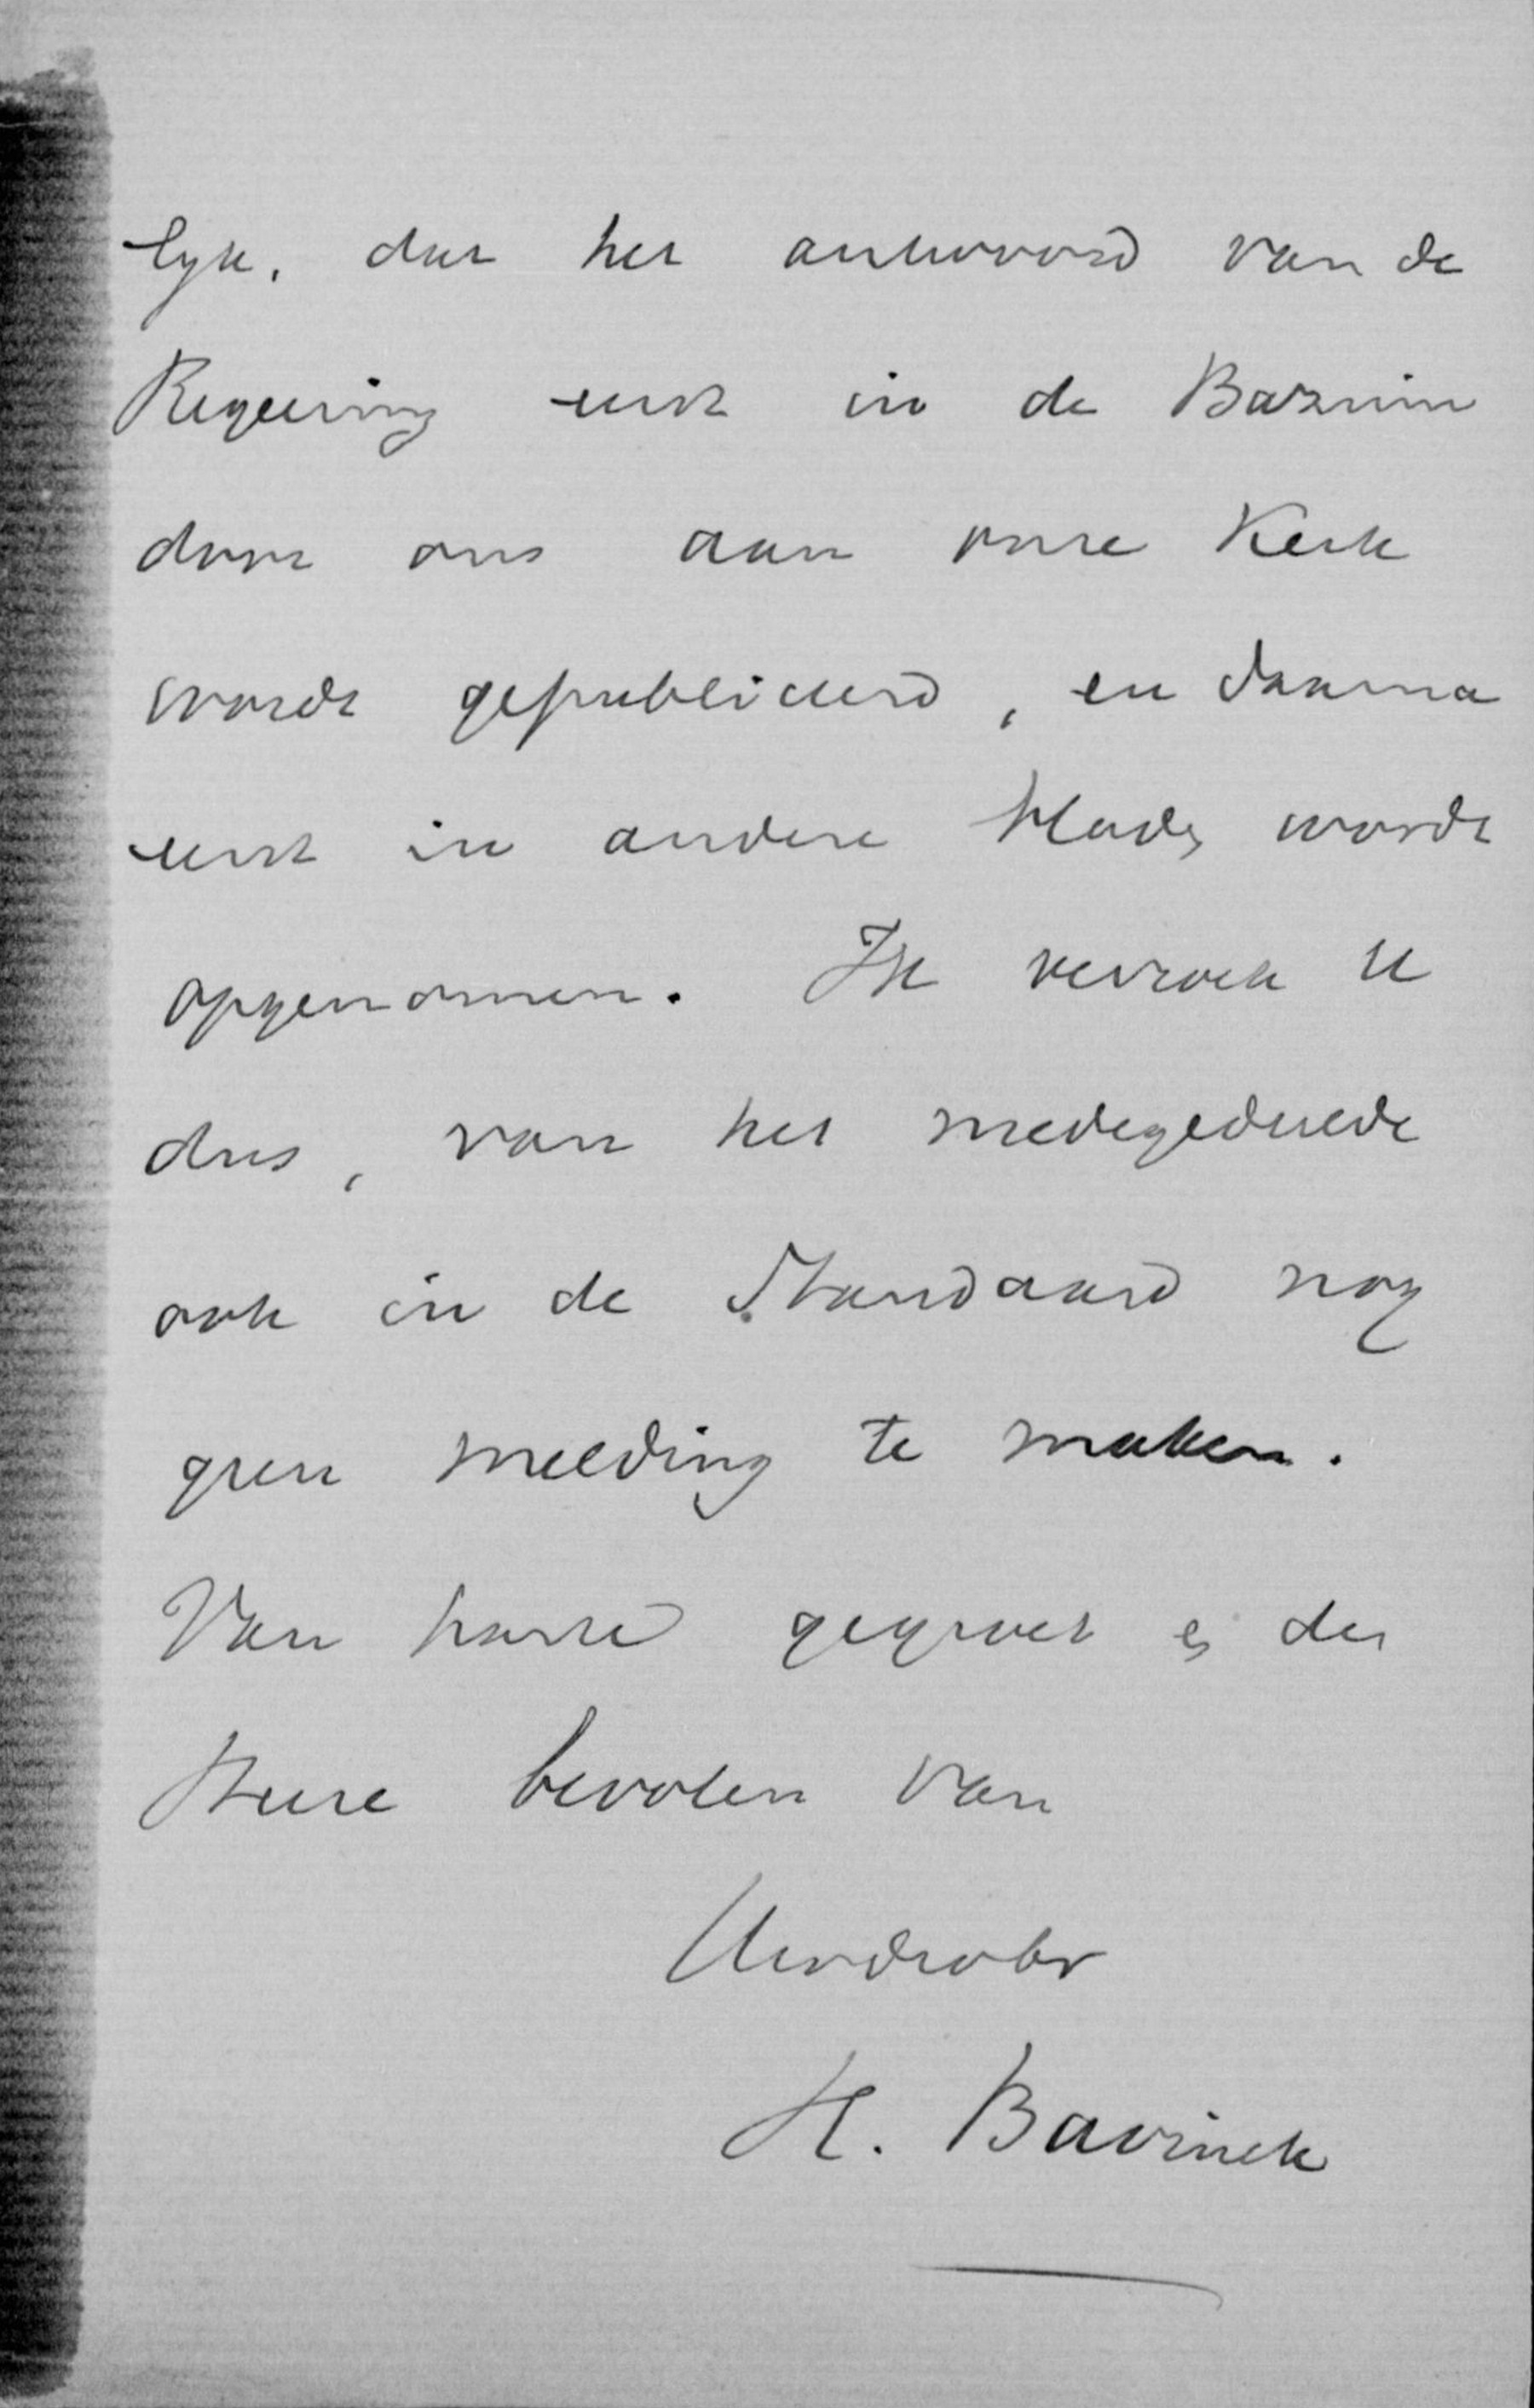 lyk, dat het antwoord van de
Regeering eerst in de Bazuin
door ons aan onze Kerk
wordt gepubliceerd, en daarna
eerst in andere bladen wordt
opgenomen. Ik verzoek U
dus, van het medegedeelde
ook in de Standaard nog
geen melding te maken.
Van harte gegroet en den
Heere bevolen van
Uwdwbr
H. Bavinck